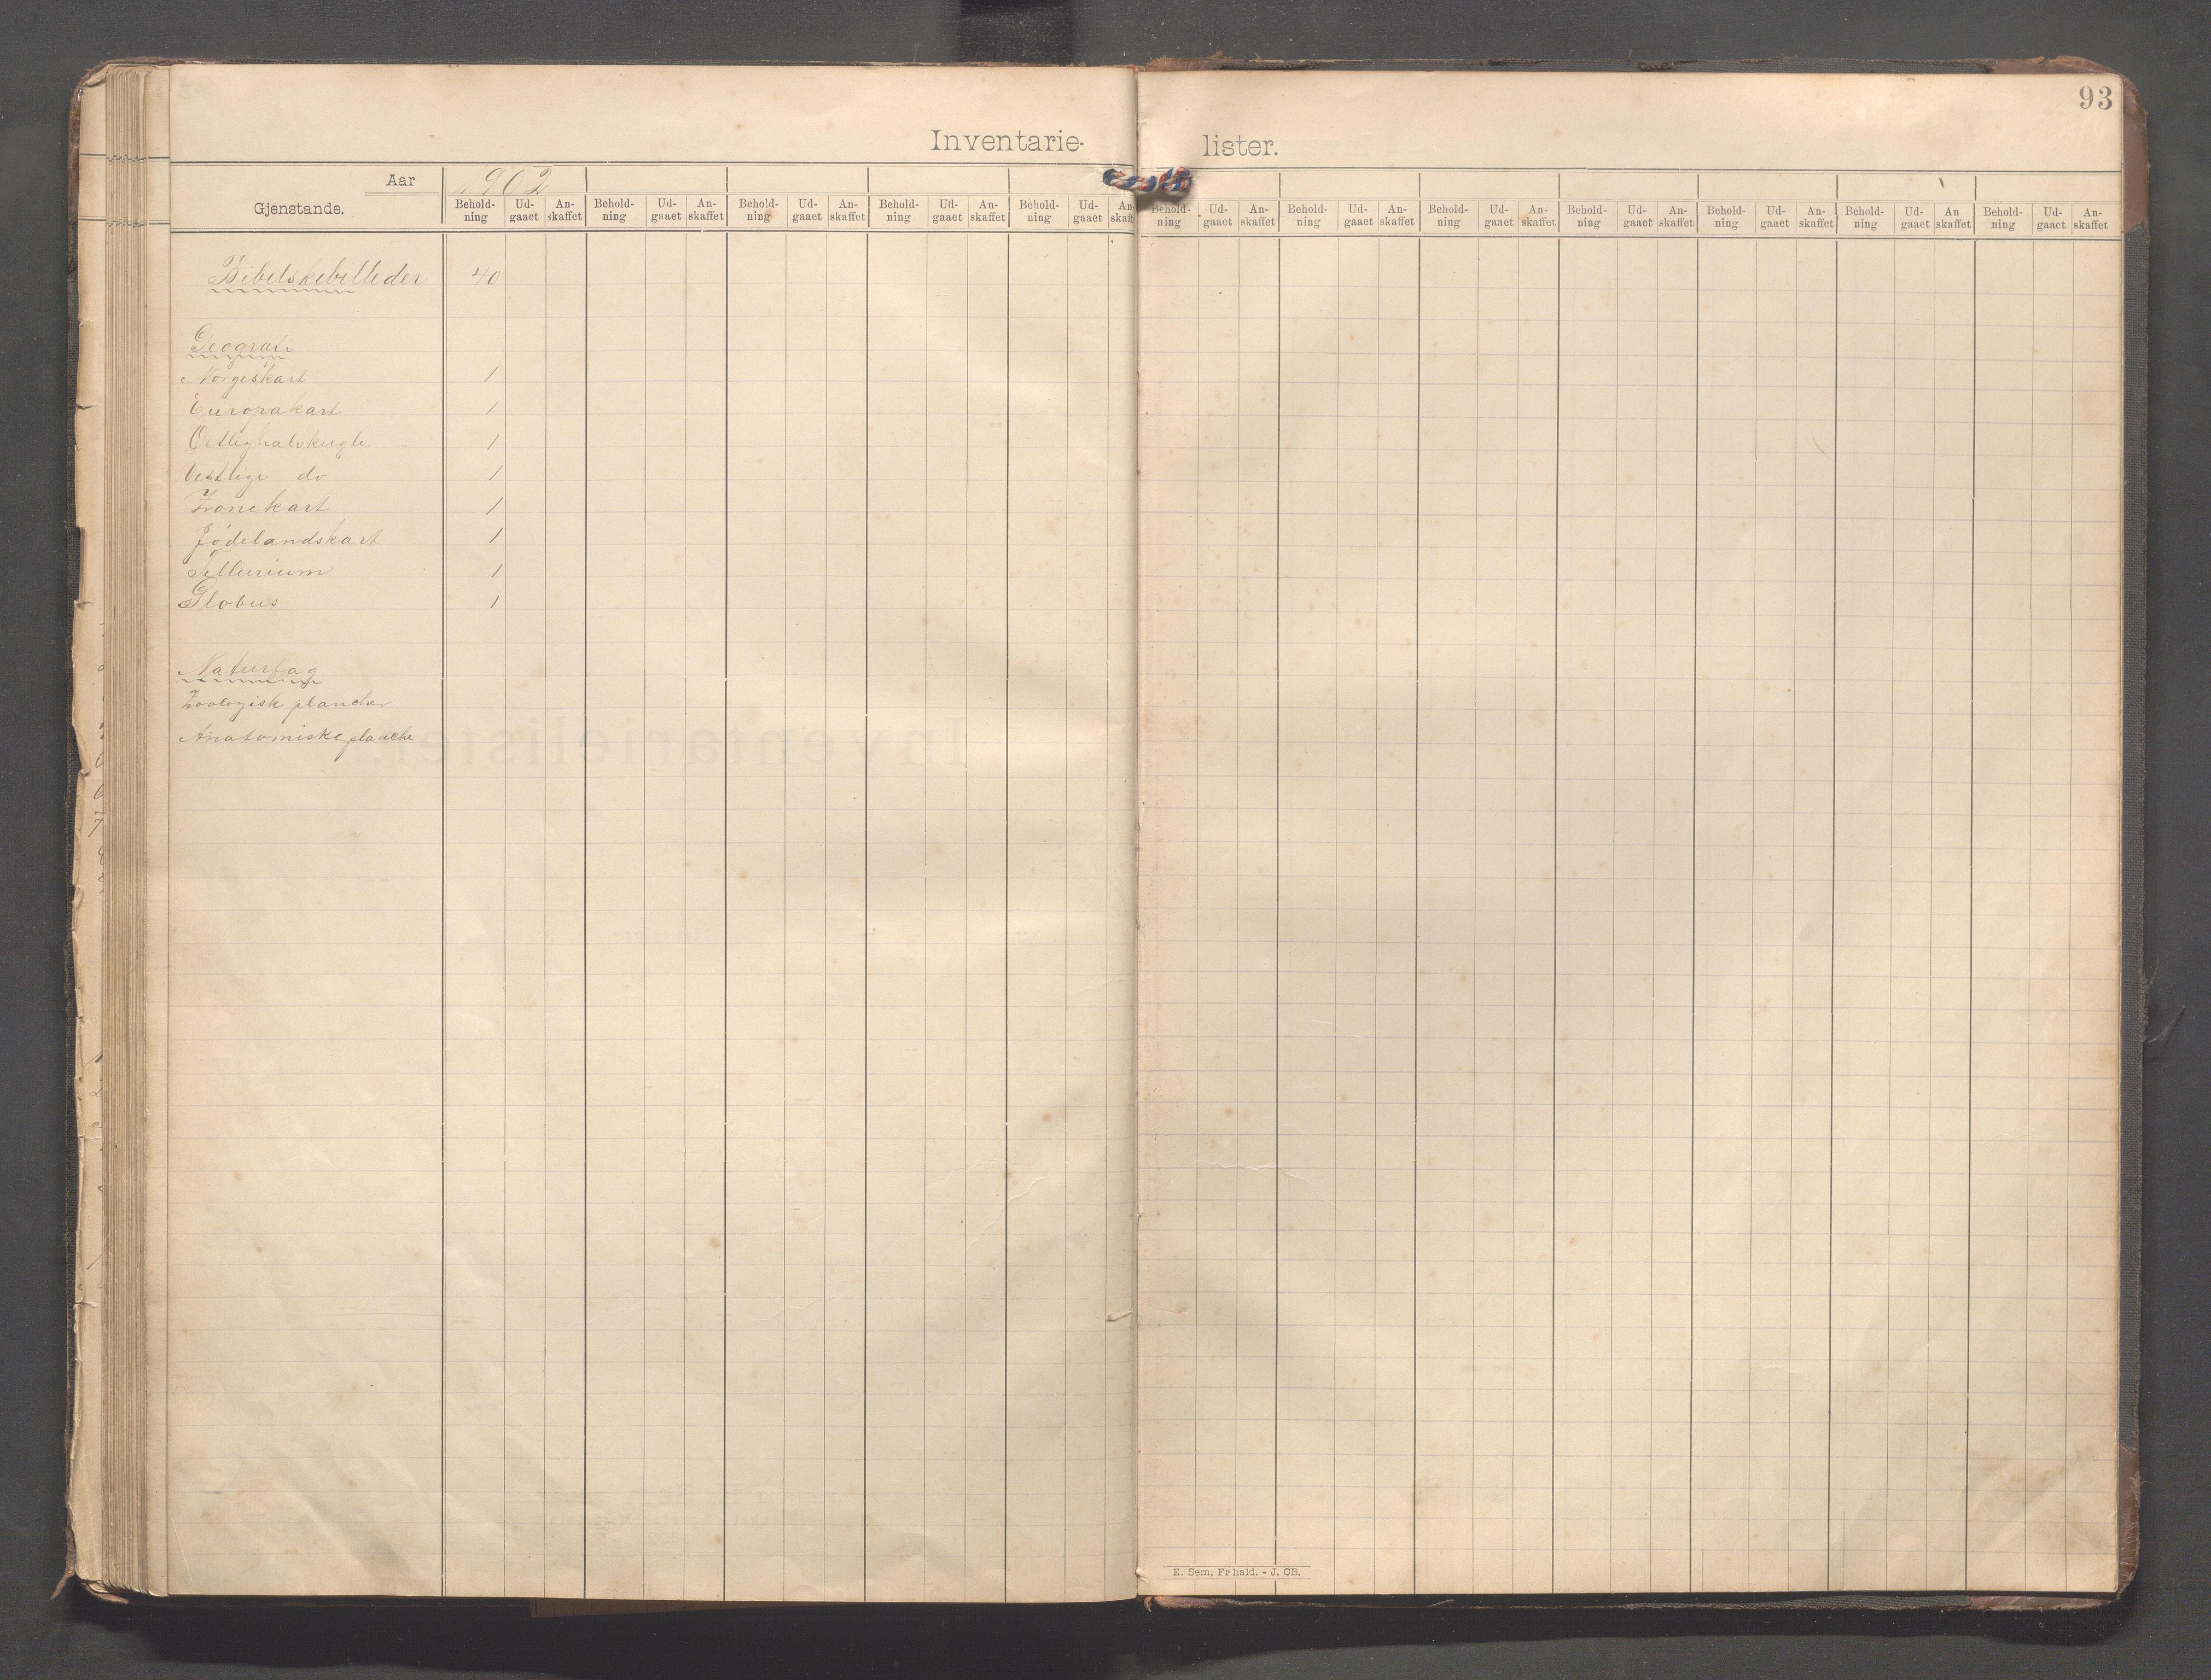 93
Inventarie- lister.
Aar 1902
Gjenstande. Behold-ning Ud-gaaet An-skaffet Behold-ning Ud-gaaet An-skaffet Behold-ning Ud-gaaet An-skaffet Behold-ning Ud-gaaet An-skaffet Behold-ning Ud-gaaet An-skaff Behold-ning Ud-gaaet An-skaffet Behold-ning Ud-gaaet An-skaffet Behold-ning Ud-gaaet An-skaffet Behold-ning Ud-gaaet An-skaffet Behold-ning Ud-gaaet An-skaffet Behold-ning Ud-gaaet An skaffet Behold-ning Ud-gaaet An-skaffet
Bibelskebilleder 40
Geografi
Norgeskart 1
Europakart 1
Østlighalvkugle 1
Vestlige do 1
Zonekart 1
Jødelandskart 1
Tellurium 1
Globus 1
Naturfag
Zoologisk plancher
Anatomiske planche
E. Sem, Fr hald. - J. CB.